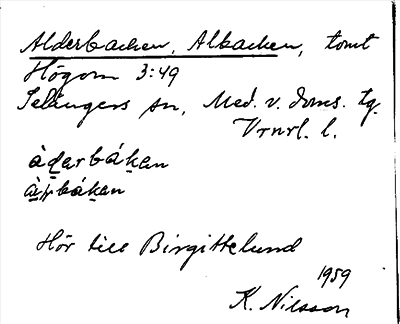 Alderbacken, Albacken, tomt
Högom 3:49
Selångers sn, Med. v. doms. tg.
Vrnrl. l.
àḏarbáḵan
báḵan
Hör till Birgittelund
1959
K. Nilsson